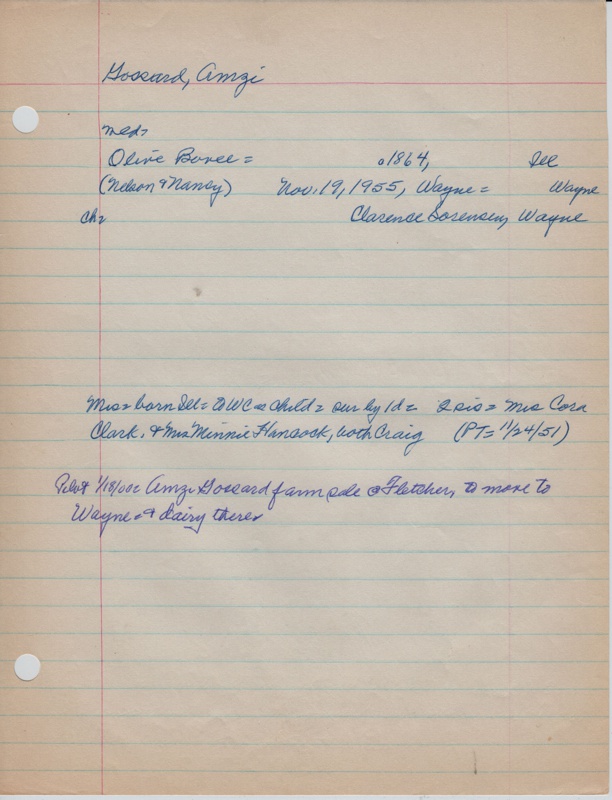 Gossard, Amzi
med:
Olive Bovee = 1864, Ill
(Nelson & Nancy) Nov. 19, 1955, Wayne = Wayne
ch: Clarence Sorensen, Wayne
Mrs = born Ill = to WC as child = sur by 1d = 2 sis = Mrs Cora
Clark, & Mrs Minnie Hancock, both Craig (PT = 11/24/51)
Pilot 1/18/00: Amzi Gossard farm sale @ Fletcher, to move to
Wayne & dairy there